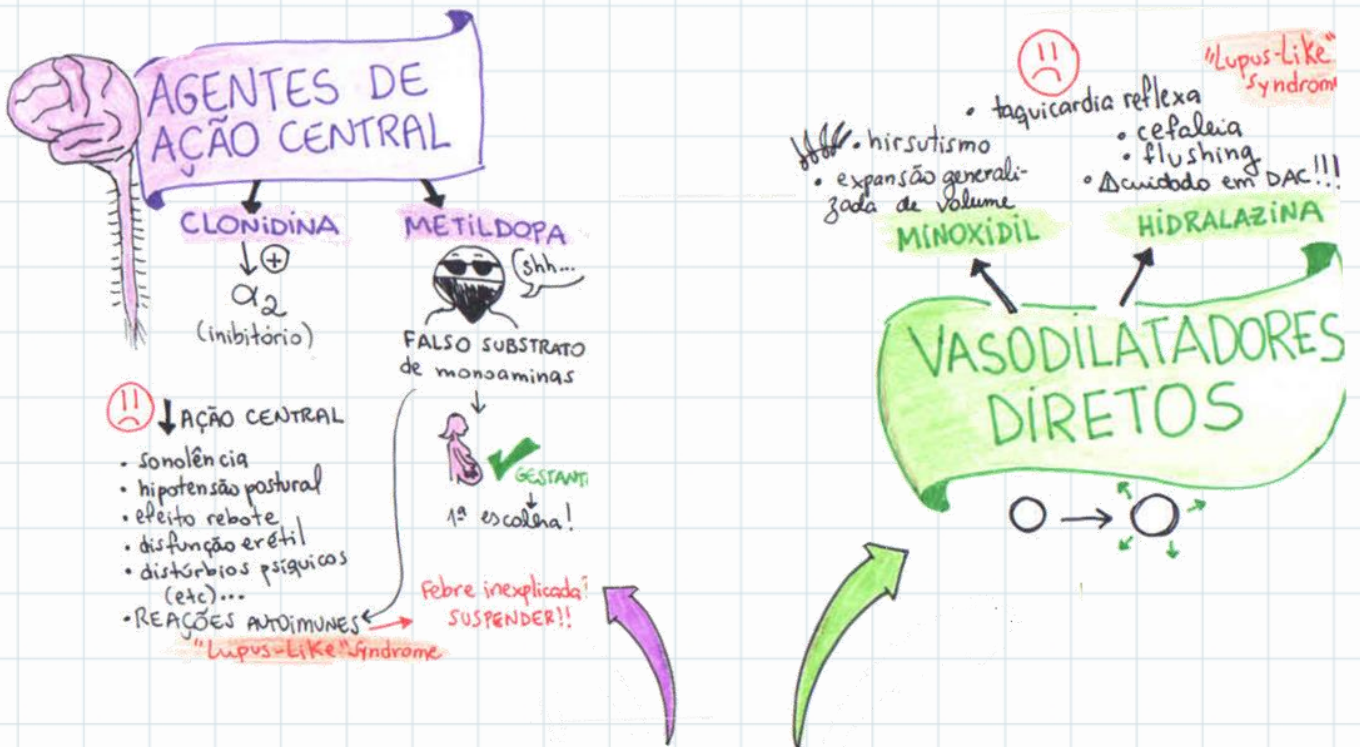 AGENTES DE
AÇÃO CENTRAL
CLONIDINA
+
α2
(inibitório)
METILDOPA
shh...
FALSO SUBSTRATO
de monoaminas
GESTANT
1ª escolha!
↓ AÇÃO CENTRAL
• sonolência
• hipotensão postural
• efeito rebote
• disfunção erétil
• distúrbios psíquicos
(etc)...
• REAÇÕES AUTOIMUNES
"Lupus-Like" Syndrome
Febre inexplicada?
SUSPENDER!!
"Lupus-Like"
Syndrom
• taquicardia reflexa
• cefaleia
• flushing
• cuidado em DAC!!!
HIDRALAZINA
• hirsutismo
• expansão generali-
zada de volume
MINOXIDIL
VASODILATADORES
DIRETOS